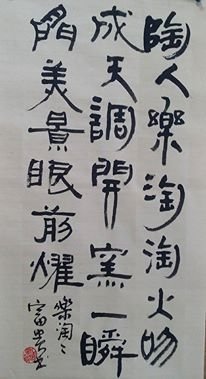 陶人樂淘淘火吻
成天調開窯一瞬
間美景眼前耀
樂淘々